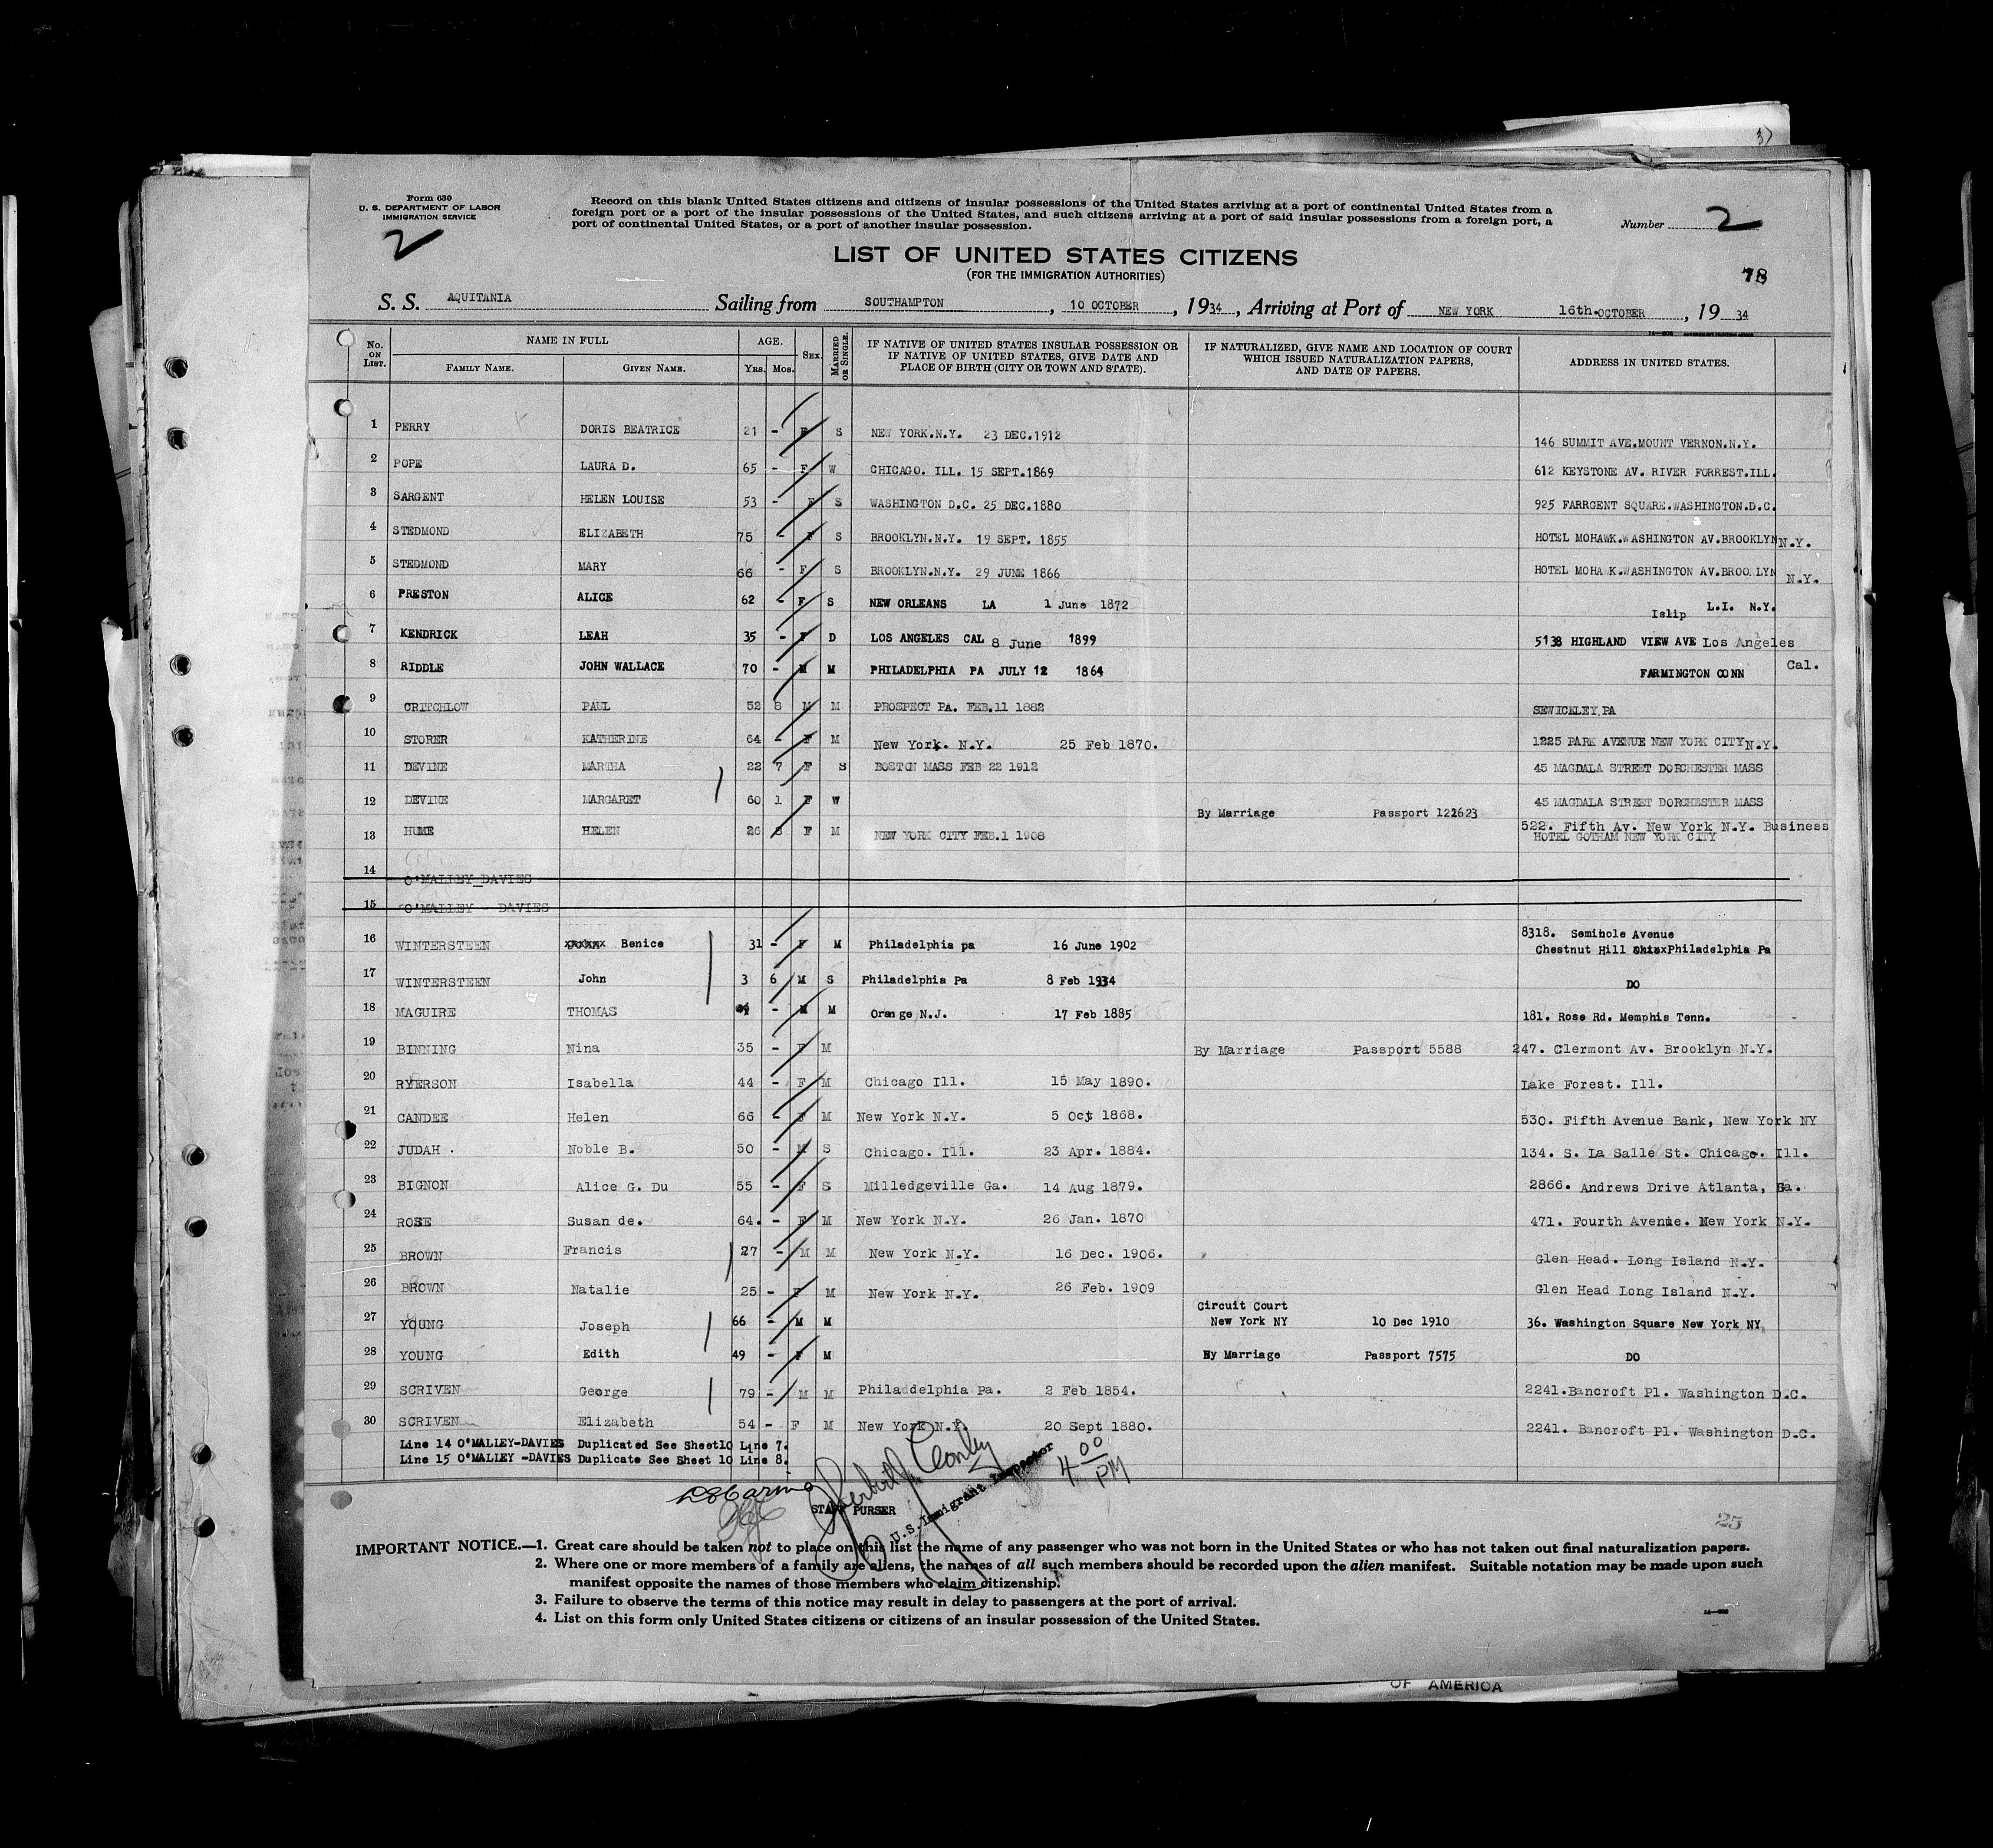 Form 630
U. S. DEPARTMENT OF LABOR
IMMIGRATION SERVICE
2
Record on this blank United States citizens and citizens of insular possessions of the United States arriving at a port of continental United States from a
foreign port or a port of the insular possessions of the United States, and such citizens arriving at a port of said insular possessions from a foreign port, a
port of continental United States, or a port of another insular possession.
Number 2
LIST OF UNITED STATES CITIZENS
(FOR THE IMMIGRATION AUTHORITIES)
78
S. S. AQUITANIA Sailing from SOUTHAMPTON, 10 OCTOBER, 1934, Arriving at Port of NEW YORK 16th.OCTOBER, 19 34
No. ON LIST. NAME IN FULL FAMILY NAME. GIVEN NAME. AGE. Yrs. Mos. SEX. MARRIED OR SINGLE. IF NATIVE OF UNITED STATES INSULAR POSSESSION OR IF NATIVE OF UNITED STATES, GIVE DATE AND PLACE OF BIRTH (CITY OR TOWN AND STATE). IF NATURALIZED, GIVE NAME AND LOCATION OF COURT WHICH ISSUED NATURALIZATION PAPERS, AND DATE OF PAPERS. ADDRESS IN UNITED STATES.
1 PERRY DORIS BEATRICE 21 - F S NEW YORK.N.Y. 23 DEC.1912 146 SUMMIT AVE.MOUNT VERNON.N.Y.
2 POPE LAURA D. 65 - F W CHICAGO. ILL. 15 SEPT.1869 612 KEYSTONE AV. RIVER FORREST.ILL.
3 SARGENT HELEN LOUISE 53 - F S WASHINGTON D.C. 25 DEC.1880 925 FARRGENT SQUARE.WASHINGTON.D.C.
4 STEDMOND ELIZABETH 75 - F S BROOKLYN.N.Y. 19 SEPT. 1855 HOTEL MOHAWK.WASHINGTON AV.BROOKLYN N.Y.
5 STEDMOND MARY 66 - F S BROOKLYN.N.Y. 29 JUNE 1866 HOTEL MOHAWK.WASHINGTON AV.BROOKLYN N.Y.
6 PRESTON ALICE 62 - F S NEW ORLEANS LA 1 June 1872 Islip L.I. N.Y.
7 KENDRICK LEAH 35 - F D LOS ANGELES CAL 8 June 1899 5138 HIGHLAND VIEW AVE Los Angeles Cal.
8 RIDDLE JOHN WALLACE 70 - M M PHILADELPHIA PA JULY 12 1864 FARMINGTON CONN
9 CRITCHLOW PAUL 52 8 M M PROSPECT PA. FEB.11 1882 SEWICKLEY,PA
10 STORER KATHERINE 64 - F M New York. N.Y. 25 Feb 1870. 1225 PARK AVENUE NEW YORK CITY N.Y.
11 DEVINE MARTHA 22 7 F S BOSTON MASS FEB 22 1912 45 MAGDALA STREET DORCHESTER MASS
12 DEVINE MARGARET 60 1 F W By Marriage Passport 122623 45 MAGDALA STREET DORCHESTER MASS
13 HUME HELEN 26 8 F M NEW YORK CITY FEB.1 1908 522. Fifth Av. New York N.Y. Business
HOTEL GOTHAM NEW YORK CITY
14 O'MALLEY_DAVIES
15 O'MALLEY - DAVIES
16 WINTERSTEEN Benice 31 - F M Philadelphia pa 16 June 1902 8318. Semihole Avenue
Chestnut Hill Philadelphia Pa
17 WINTERSTEEN John 3 6 M S Philadelphia Pa 8 Feb 1934 DO
18 MAGUIRE THOMAS - M M Orange N.J. 17 Feb 1885 181. Rose Rd. Memphis Tenn.
19 BINNING Nina 35 - F M By Marriage Passport 5588 247. Clermont Av. Brooklyn N.Y.
20 RYERSON Isabella 44 - F M Chicago Ill. 15 May 1890. Lake Forest. Ill.
21 CANDEE Helen 66 - F M New York N.Y. 5 Oct 1868. 530. Fifth Avenue Bank, New York NY
22 JUDAH . Noble B. 50 - M S Chicago. Ill. 23 Apr. 1884. 134. S. La Salle St. Chicago. Ill.
23 BIGNON Alice G. Du 55 - F S Milledgeville Ga. 14 Aug 1879. 2866. Andrews Drive Atlanta, Ga.
24 ROSE Susan de. 64. - F M New York N.Y. 26 Jan. 1870 471. Fourth Avenue. New York N.Y.
25 BROWN Francis 27 - M M New York N.Y. 16 Dec. 1906. Glen Head. Long Island N.Y.
26 BROWN Natalie 25 - F M New York N.Y. 26 Feb. 1909 Glen Head Long Island N.Y.
27 YOUNG Joseph 66 - M M Circuit Court New York NY 10 Dec 1910 36. Washington Square New York NY
28 YOUNG Edith 49 - F M By Marriage Passport 7575 DO
29 SCRIVEN George 79 - M M Philaddelphia Pa. 2 Feb 1854. 2241.Bancroft Pl. Washington D.C.
30 SCRIVEN Elizabeth 54 - F M New York N.Y. 20 Sept 1880. 2241. Bancroft Pl. Washington D.C.
Line 14 O'MALLEY-DAVIES Duplicated See Sheet10 Line 7.
Line 15 O'MALLEY -DAVIES Duplicate See Sheet 10 Line 8.
4 00 PM
STAFF PURSER
U.S. Immigrant Inspector
25
IMPORTANT NOTICE.—1. Great care should be taken not to place on this list the name of any passenger who was not born in the United States or who has not taken out final naturalization papers.
2. Where one or more members of a family are aliens, the names of all such members should be recorded upon the alien manifest. Suitable notation may be made upon such
manifest opposite the names of those members who claim citizenship.
3. Failure to observe the terms of this notice may result in delay to passengers at the port of arrival.
4. List on this form only United States citizens or citizens of an insular possession of the United States.
OF AMERICA